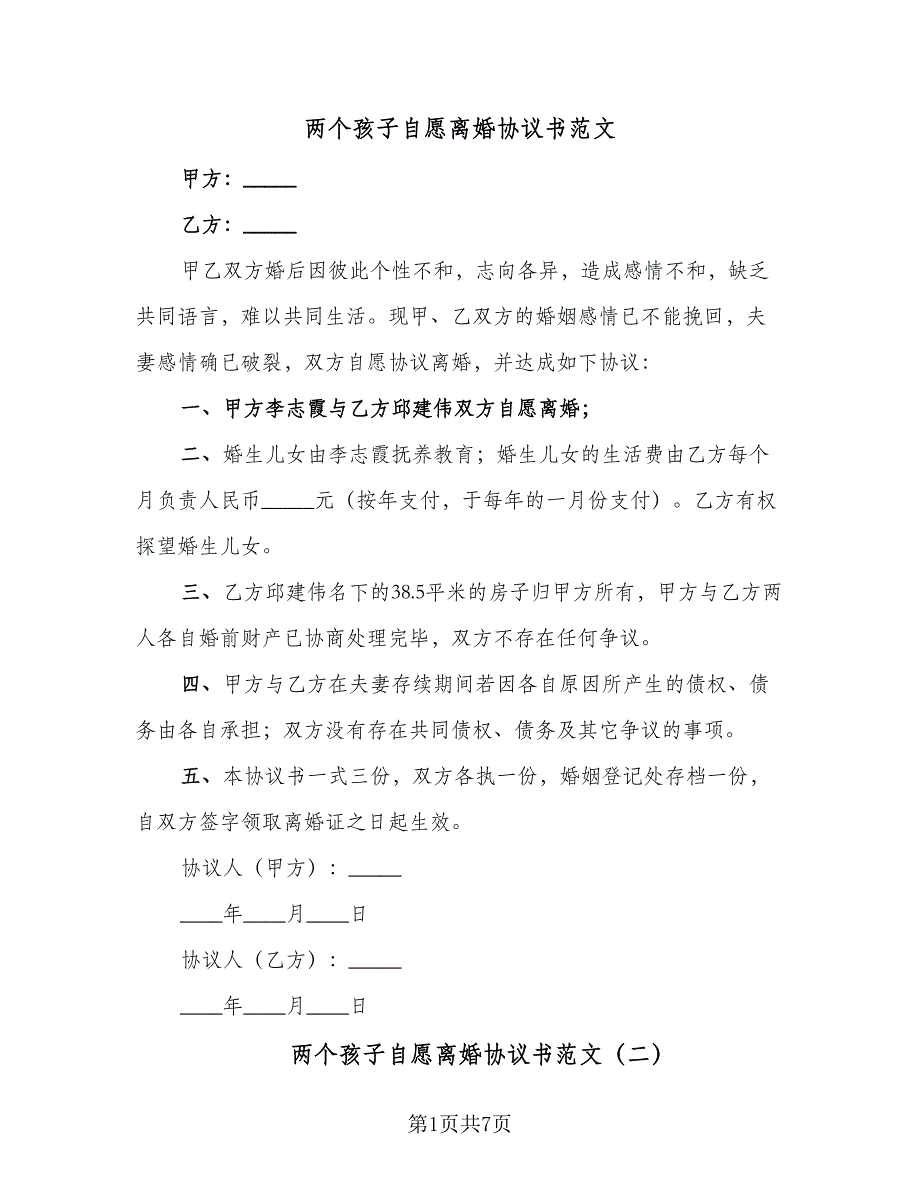 两个孩子自愿离婚协议书范文
甲方：_____
乙方：_____
甲乙双方婚后因彼此个性不和，志向各异，造成感情不和，缺乏
共同语言，难以共同生活。现甲、乙双方的婚姻感情已不能挽回，夫
妻感情确已破裂，双方自愿协议离婚，并达成如下协议：
一、甲方李志霞与乙方邱建伟双方自愿离婚；
二、婚生儿女由李志霞抚养教育；婚生儿女的生活费由乙方每个
月负责人民币_____元（按年支付，于每年的一月份支付）。乙方有权
探望婚生儿女。
三、乙方邱建伟名下的38.5平米的房子归甲方所有，甲方与乙方两
人各自婚前财产已协商处理完毕，双方不存在任何争议。
四、甲方与乙方在夫妻存续期间若因各自原因所产生的债权、债
务由各自承担；双方没有存在共同债权、债务及其它争议的事项。
五、本协议书一式三份，双方各执一份，婚姻登记处存档一份，
自双方签字领取离婚证之日起生效。
协议人（甲方）：_____
____年____月____日
协议人（乙方）：_____
____年____月____日
两个孩子自愿离婚协议书范文（二）
第1页共7页